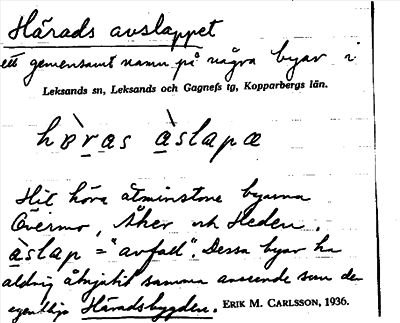 Härads avslappet
ett gemensamt namn på några byar i
Leksands sn, Leksands och Gagnefs tg, Kopparbergs län.
hèras àslapæ
Hit höra åtminstone byarna
Övermo, Åker och Heden.
àslap = "avfall". Dessa byar ha
aldrig åtnjutit samma anseende som de
egentliga Häradsbygden. ERIK M. CARLSSON, 1936.